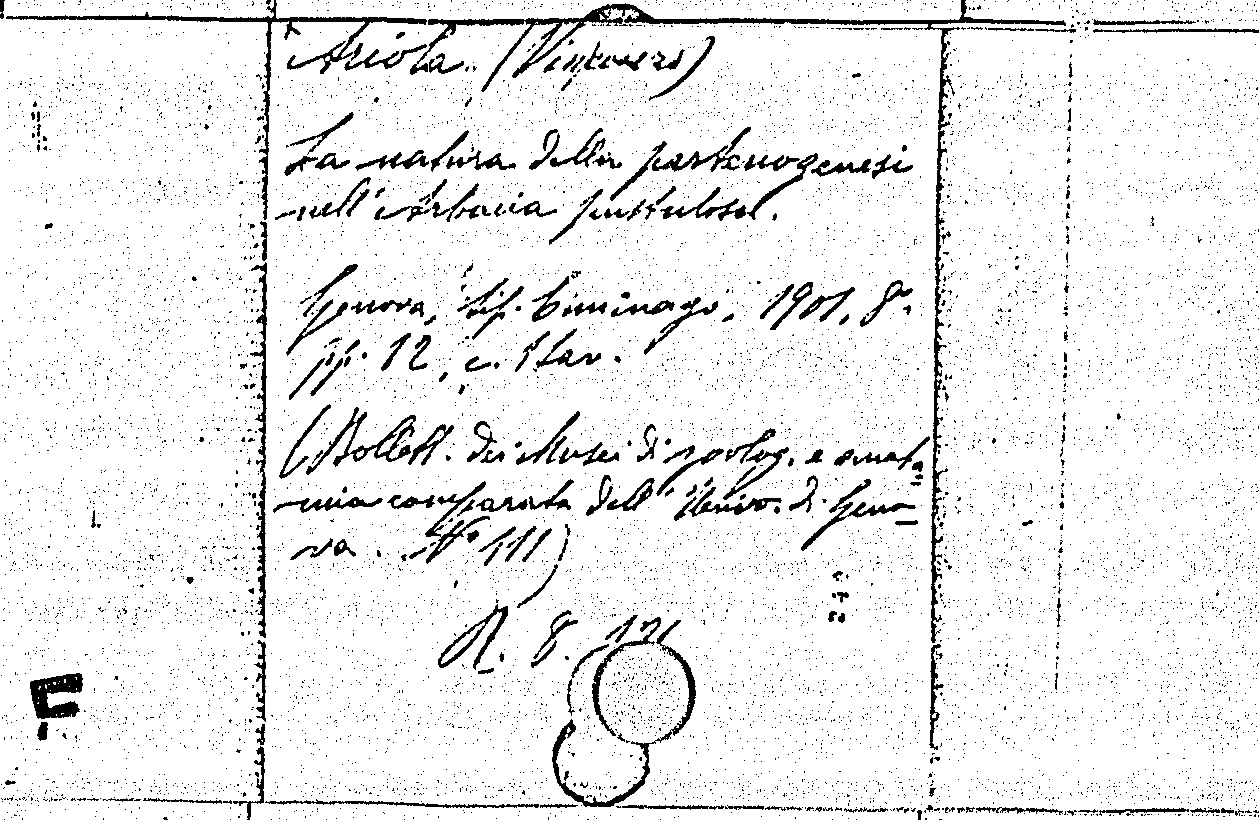 Ariola. (Vincenzo)
La natura della partenogenesi
nell'Arbacia pustulosa.
Genova, tip. Ciminago, 1901, 8°.
pp. 12, c. 1 tav.
(Bollett. dei Musei di zoolog. e anato
mia comparata dell'Univ. di Geno-
va. N° 111)
R. 8. 121